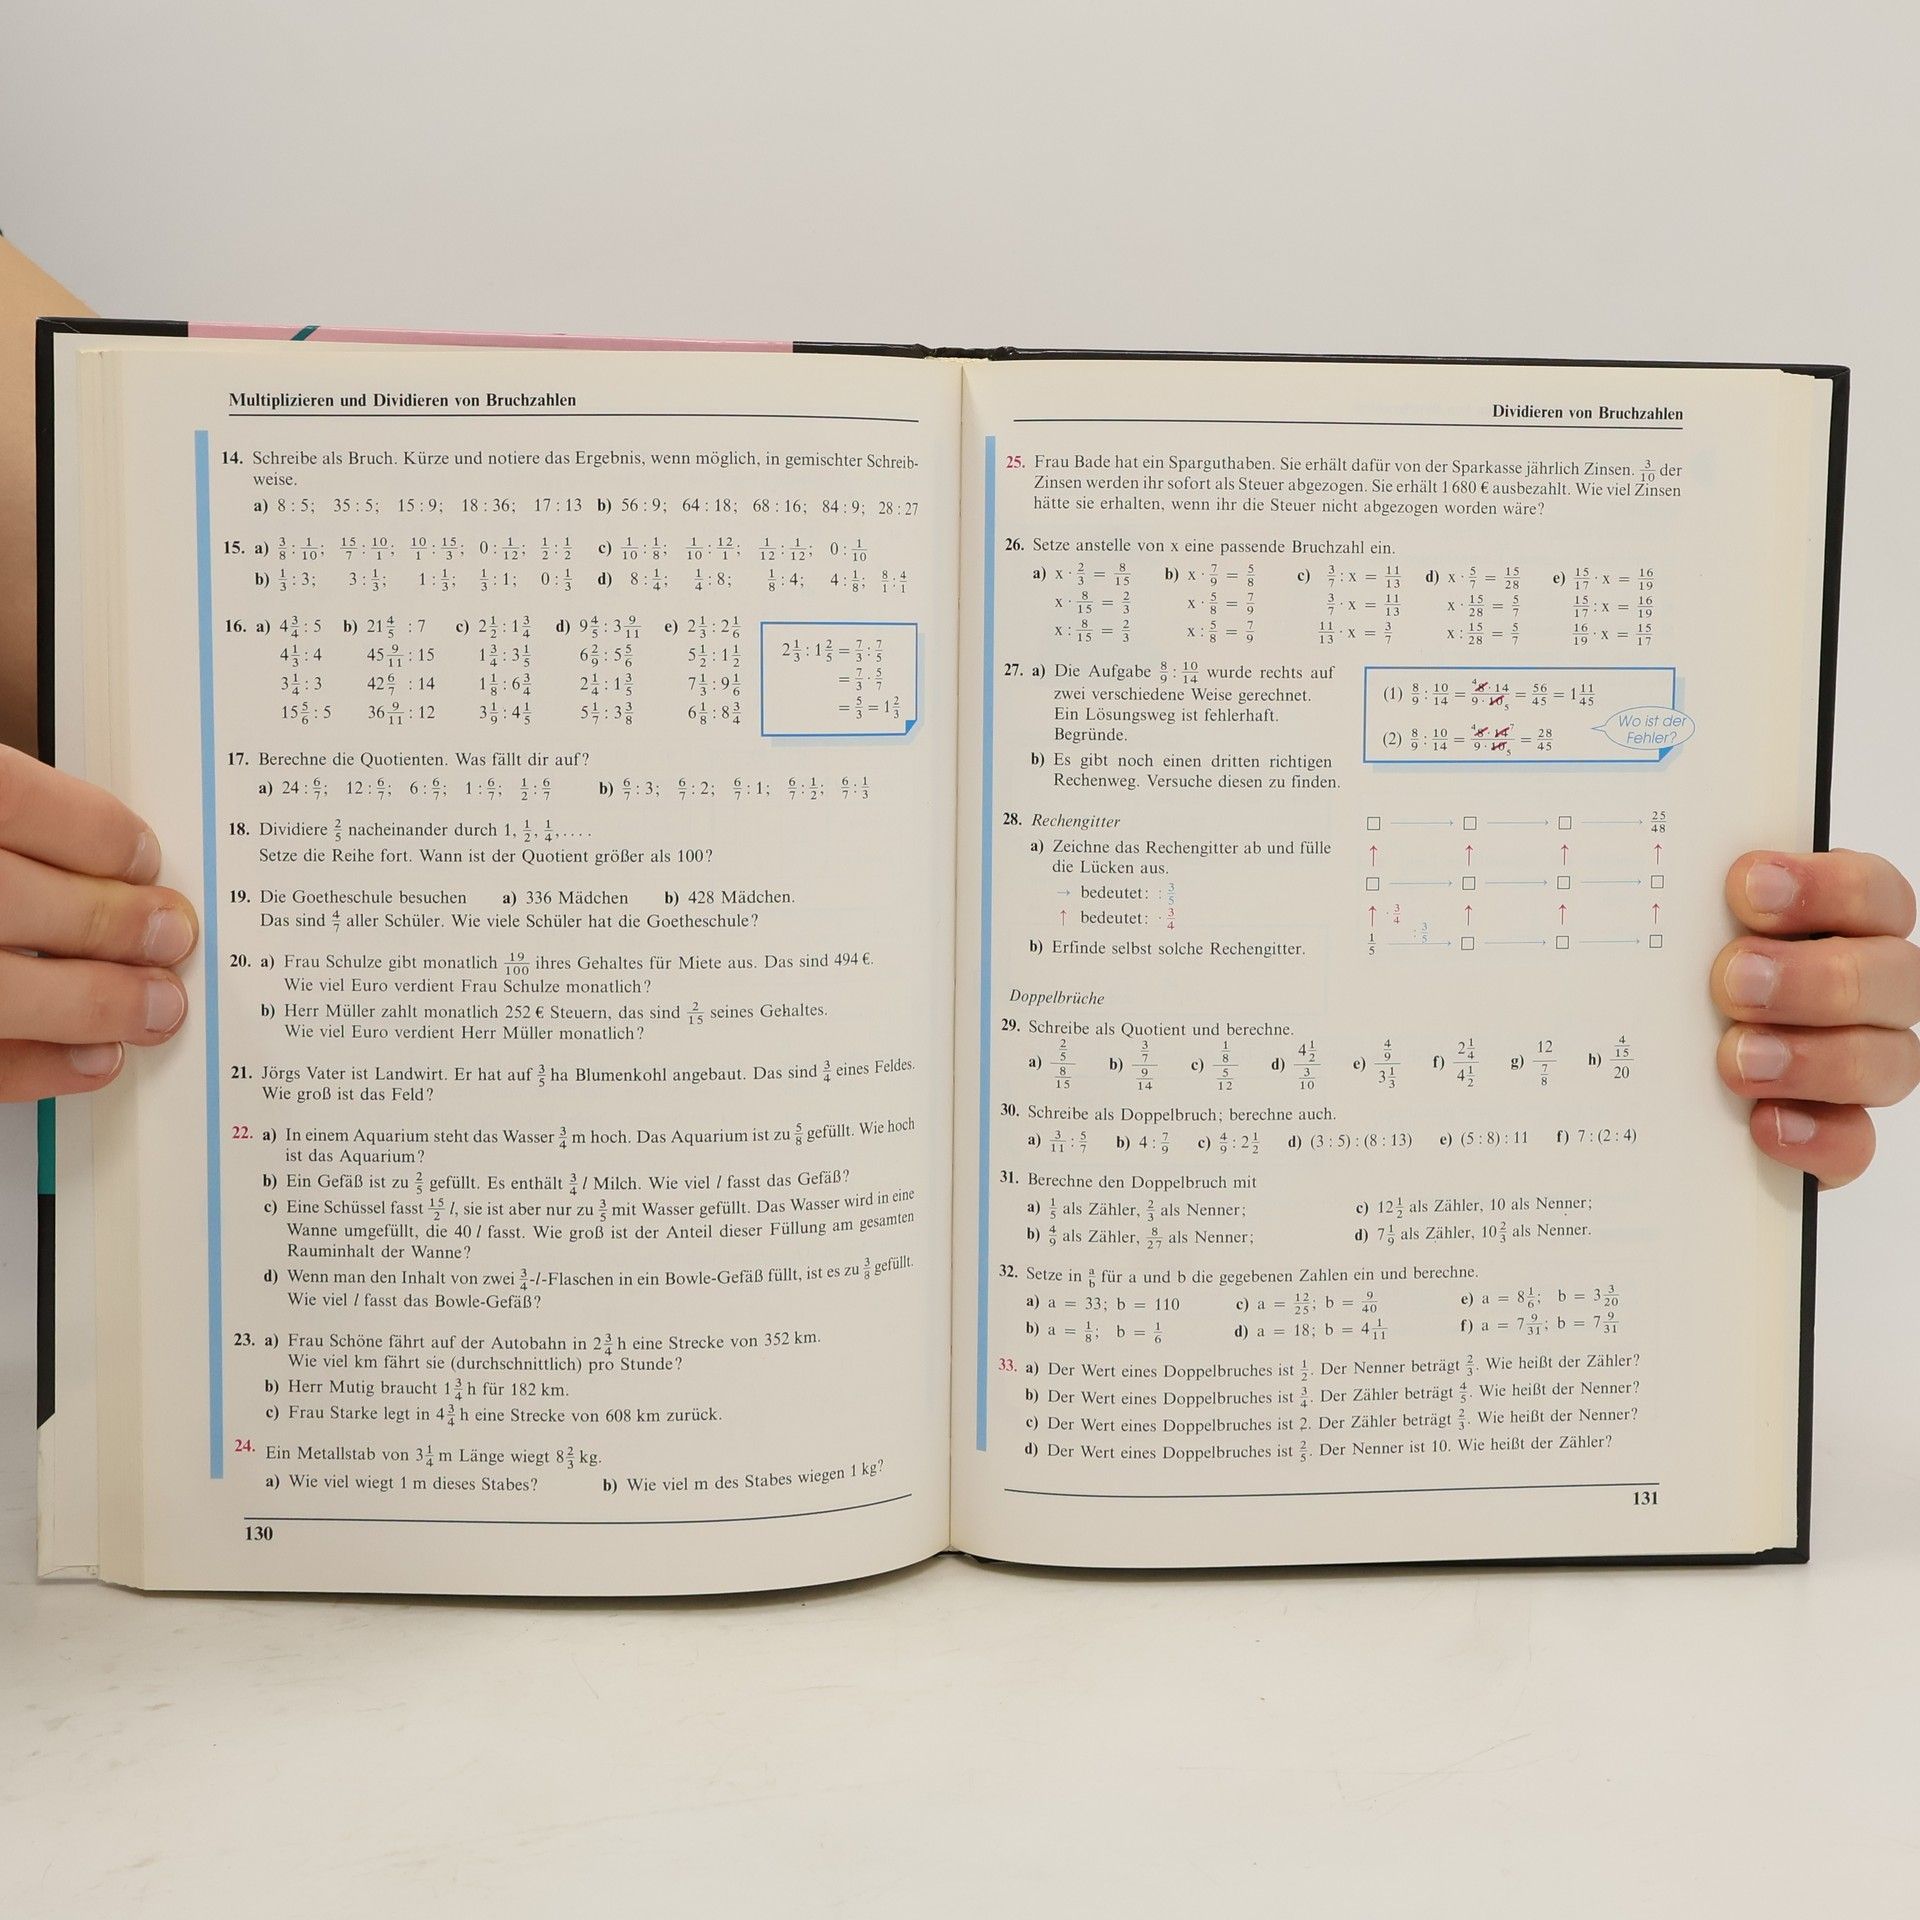 Multiplizieren und Dividieren von Bruchzahlen
14. Schreibe als Bruch. Kürze und notiere das Ergebnis, wenn möglich, in gemischter Schreib-
weise.
a) 8 : 5; 35 : 5; 15 : 9; 18 : 36; 17 : 13 b) 56 : 9; 64 : 18; 68 : 16; 84 : 9; 28 : 27
15. a) 3/8 : 1/10; 15/7 : 10/1; 10/1 : 15/3; 0 : 1/12; 1/2 : 1/2 c) 1/10 : 1/8; 1/10 : 12/1; 1/12 : 1/12; 0 : 1/10
b) 1/3 : 3; 3 : 1/3; 1 : 1/3; 1/3 : 1; 0 : 1/3 d) 8 : 1/4; 1/4 : 8; 1/8 : 4; 4 : 1/8; 8/1 : 4/1
16. a) 4 3/4 : 5 b) 21 4/5 : 7 c) 2 1/2 : 1 3/4 d) 9 4/5 : 3 9/11 e) 2 1/3 : 2 1/6
4 1/3 : 4 45 9/11 : 15 1 3/4 : 3 1/5 6 2/9 : 5 5/6 5 1/2 : 1 1/2
3 1/4 : 3 42 6/7 : 14 1 1/8 : 6 3/4 2 1/4 : 1 3/5 7 1/3 : 9 1/6
15 5/6 : 5 36 9/11 : 12 3 1/9 : 4 1/5 5 1/7 : 3 3/8 6 1/8 : 8 3/4
2 1/3 : 1 2/5 = 7/3 : 7/5
= 7/3 · 5/7
= 5/3 = 1 2/3
17. Berechne die Quotienten. Was fällt dir auf?
a) 24 : 6/7; 12 : 6/7; 6 : 6/7; 1 : 6/7; 1/2 : 6/7 b) 6/7 : 3; 6/7 : 2; 6/7 : 1; 6/7 : 1/2; 6/7 : 1/3
18. Dividiere 2/5 nacheinander durch 1, 1/2, 1/4, ....
Setze die Reihe fort. Wann ist der Quotient größer als 100?
19. Die Goetheschule besuchen a) 336 Mädchen b) 428 Mädchen.
Das sind 4/7 aller Schüler. Wie viele Schüler hat die Goetheschule?
20. a) Frau Schulze gibt monatlich 19/100 ihres Gehaltes für Miete aus. Das sind 494 €.
Wie viel Euro verdient Frau Schulze monatlich?
b) Herr Müller zahlt monatlich 252 € Steuern, das sind 2/15 seines Gehaltes.
Wie viel Euro verdient Herr Müller monatlich?
21. Jörgs Vater ist Landwirt. Er hat auf 3/5 ha Blumenkohl angebaut. Das sind 3/4 eines Feldes.
Wie groß ist das Feld?
22. a) In einem Aquarium steht das Wasser 3/4 m hoch. Das Aquarium ist zu 5/8 gefüllt. Wie hoch
ist das Aquarium?
b) Ein Gefäß ist zu 2/5 gefüllt. Es enthält 3/4 l Milch. Wie viel l fasst das Gefäß?
c) Eine Schüssel fasst 15/2 l, sie ist aber nur zu 3/5 mit Wasser gefüllt. Das Wasser wird in eine
Wanne umgefüllt, die 40 l fasst. Wie groß ist der Anteil dieser Füllung am gesamten
Rauminhalt der Wanne?
d) Wenn man den Inhalt von zwei 3/4-l-Flaschen in ein Bowle-Gefäß füllt, ist es zu 3/8 gefüllt.
Wie viel l fasst das Bowle-Gefäß?
23. a) Frau Schöne fährt auf der Autobahn in 2 3/4 h eine Strecke von 352 km.
Wie viel km fährt sie (durchschnittlich) pro Stunde?
b) Herr Mutig braucht 1 3/4 h für 182 km.
c) Frau Starke legt in 4 3/4 h eine Strecke von 608 km zurück.
24. Ein Metallstab von 3 1/4 m Länge wiegt 8 2/3 kg.
a) Wie viel wiegt 1 m dieses Stabes? b) Wie viel m des Stabes wiegen 1 kg?
130
Dividieren von Bruchzahlen
25. Frau Bade hat ein Sparguthaben. Sie erhält dafür von der Sparkasse jährlich Zinsen. 3/10 der
Zinsen werden ihr sofort als Steuer abgezogen. Sie erhält 1 680 € ausbezahlt. Wie viel Zinsen
hätte sie erhalten, wenn ihr die Steuer nicht abgezogen worden wäre?
26. Setze anstelle von x eine passende Bruchzahl ein.
a) x · 2/3 = 8/15 b) x · 7/9 = 5/8 c) 3/7 : x = 11/13 d) x · 5/7 = 15/28 e) 15/17 · x = 16/19
x · 8/15 = 2/3 x · 5/8 = 7/9 3/7 · x = 11/13 x · 15/28 = 5/7 15/17 : x = 16/19
x : 8/15 = 2/3 x : 5/8 = 7/9 11/13 · x = 3/7 x : 15/28 = 5/7 16/19 · x = 15/17
27. a) Die Aufgabe 8/9 : 10/14 wurde rechts auf
zwei verschiedene Weise gerechnet.
Ein Lösungsweg ist fehlerhaft.
Begründe.
b) Es gibt noch einen dritten richtigen
Rechenweg. Versuche diesen zu finden.
(1) 8/9 : 10/14 = 4 8 · 14/9 · 10 5 = 56/45 = 1 11/45
(2) 8/9 : 10/14 = 4 8 · 14 7/9 · 10 5 = 28/45
Wo ist der
Fehler?
28. Rechengitter
a) Zeichne das Rechengitter ab und fülle
die Lücken aus.
→ bedeutet: : 3/5
↑ bedeutet: · 3/4
b) Erfinde selbst solche Rechengitter.
□ → □ → □ → 25/48
↑ ↑ ↑ ↑
□ → □ → □ → □
↑ · 3/4 ↑ ↑ ↑
1/5 : 3/5 → □ → □ → □
Doppelbrüche
29. Schreibe als Quotient und berechne.
a) (2/5)/(8/15) b) (3/7)/(9/14) c) (1/8)/(5/12) d) (4 1/2)/(3/10) e) (4/9)/(3 1/3) f) (2 1/4)/(4 1/2) g) 12/(7/8) h) (4/15)/20
30. Schreibe als Doppelbruch; berechne auch.
a) 3/11 : 5/7 b) 4 : 7/9 c) 4/9 : 2 1/2 d) (3 : 5) : (8 : 13) e) (5 : 8) : 11 f) 7 : (2 : 4)
31. Berechne den Doppelbruch mit
a) 1/5 als Zähler, 2/3 als Nenner; c) 12 1/2 als Zähler, 10 als Nenner;
b) 4/9 als Zähler, 8/27 als Nenner; d) 7 1/9 als Zähler, 10 2/3 als Nenner.
32. Setze in a/b für a und b die gegebenen Zahlen ein und berechne.
a) a = 33; b = 110 c) a = 12/25; b = 9/40 e) a = 8 1/6; b = 3 3/20
b) a = 1/8; b = 1/6 d) a = 18; b = 4 1/11 f) a = 7 9/31; b = 7 9/31
33. a) Der Wert eines Doppelbruches ist 1/2. Der Nenner beträgt 2/3. Wie heißt der Zähler?
b) Der Wert eines Doppelbruches ist 3/4. Der Zähler beträgt 4/5. Wie heißt der Nenner?
c) Der Wert eines Doppelbruches ist 2. Der Zähler beträgt 2/3. Wie heißt der Nenner?
d) Der Wert eines Doppelbruches ist 2/5. Der Nenner ist 10. Wie heißt der Zähler?
131